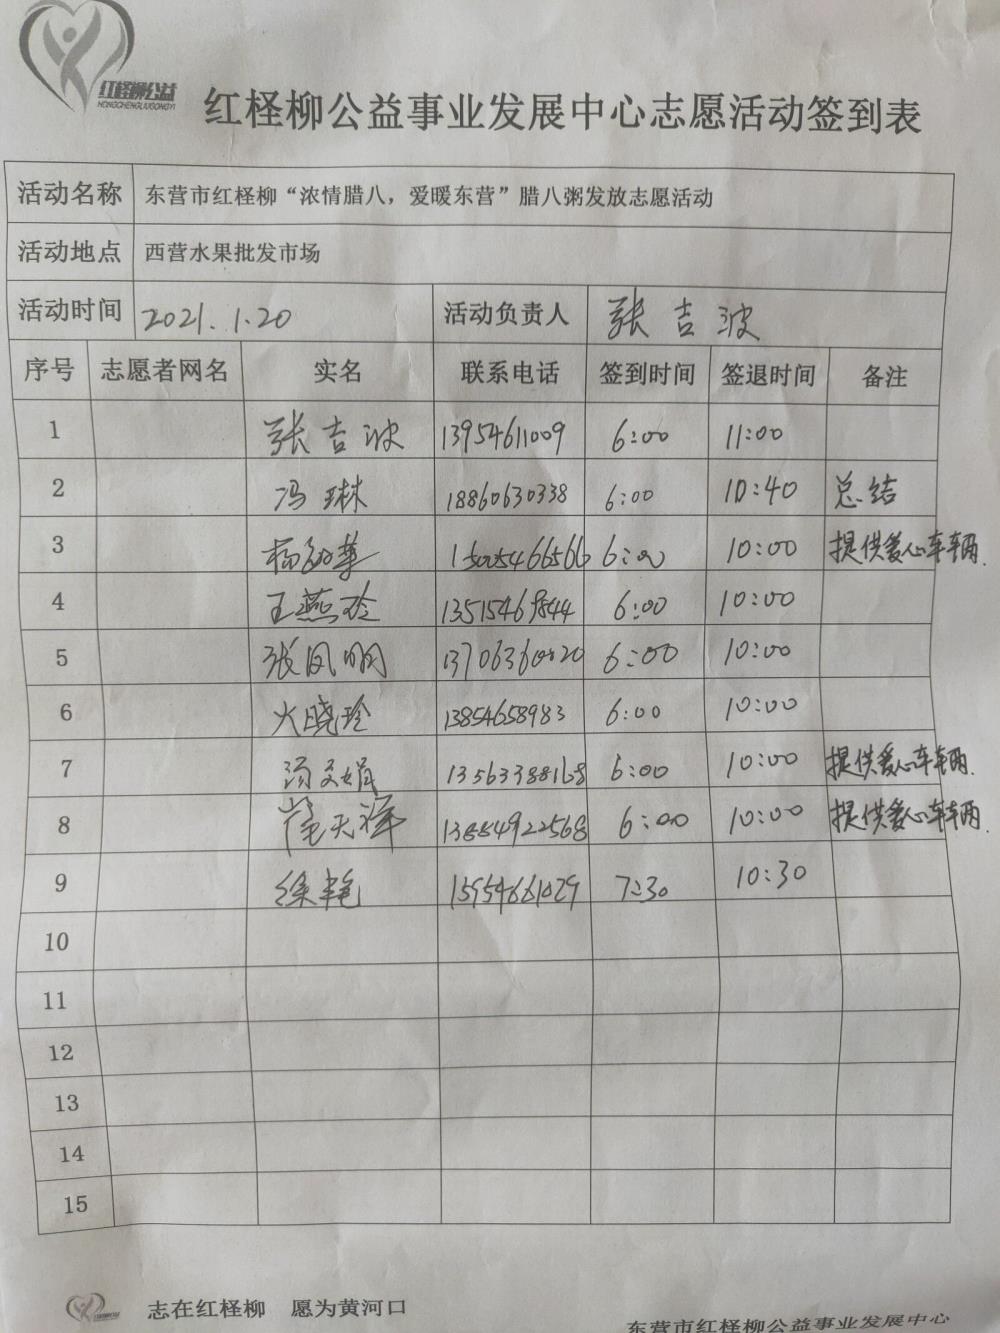 红柽柳公益
HONGCHENGLIUGONGYI
红柽柳公益事业发展中心志愿活动签到表
活动名称 东营市红柽柳“浓情腊八，爱暖东营”腊八粥发放志愿活动
活动地点 西营水果批发市场
活动时间 2021.1.20 活动负责人 张吉波
序号 志愿者网名 实名 联系电话 签到时间 签退时间 备注
1 张吉波 13954611009 6:00 11:00
2 冯琳 18860630338 6:00 10:40 总结
3 15005466566 6:00 10:00 提供爱心车辆
4 王燕玲 13515469844 6:00 10:00
5 张凤明 6:00 10:00
6 火晓玲 13854658983 6:00 10:00
7 汤文娟 13563388168 6:00 10:00 提供爱心车辆
8 天洋 13854922568 6:00 10:00 提供爱心车辆
9 徐艳 15954661029 7:30 10:30
10
11
12
13
14
15
志在红柽柳 愿为黄河口
东营市红柽柳公益事业发展中心